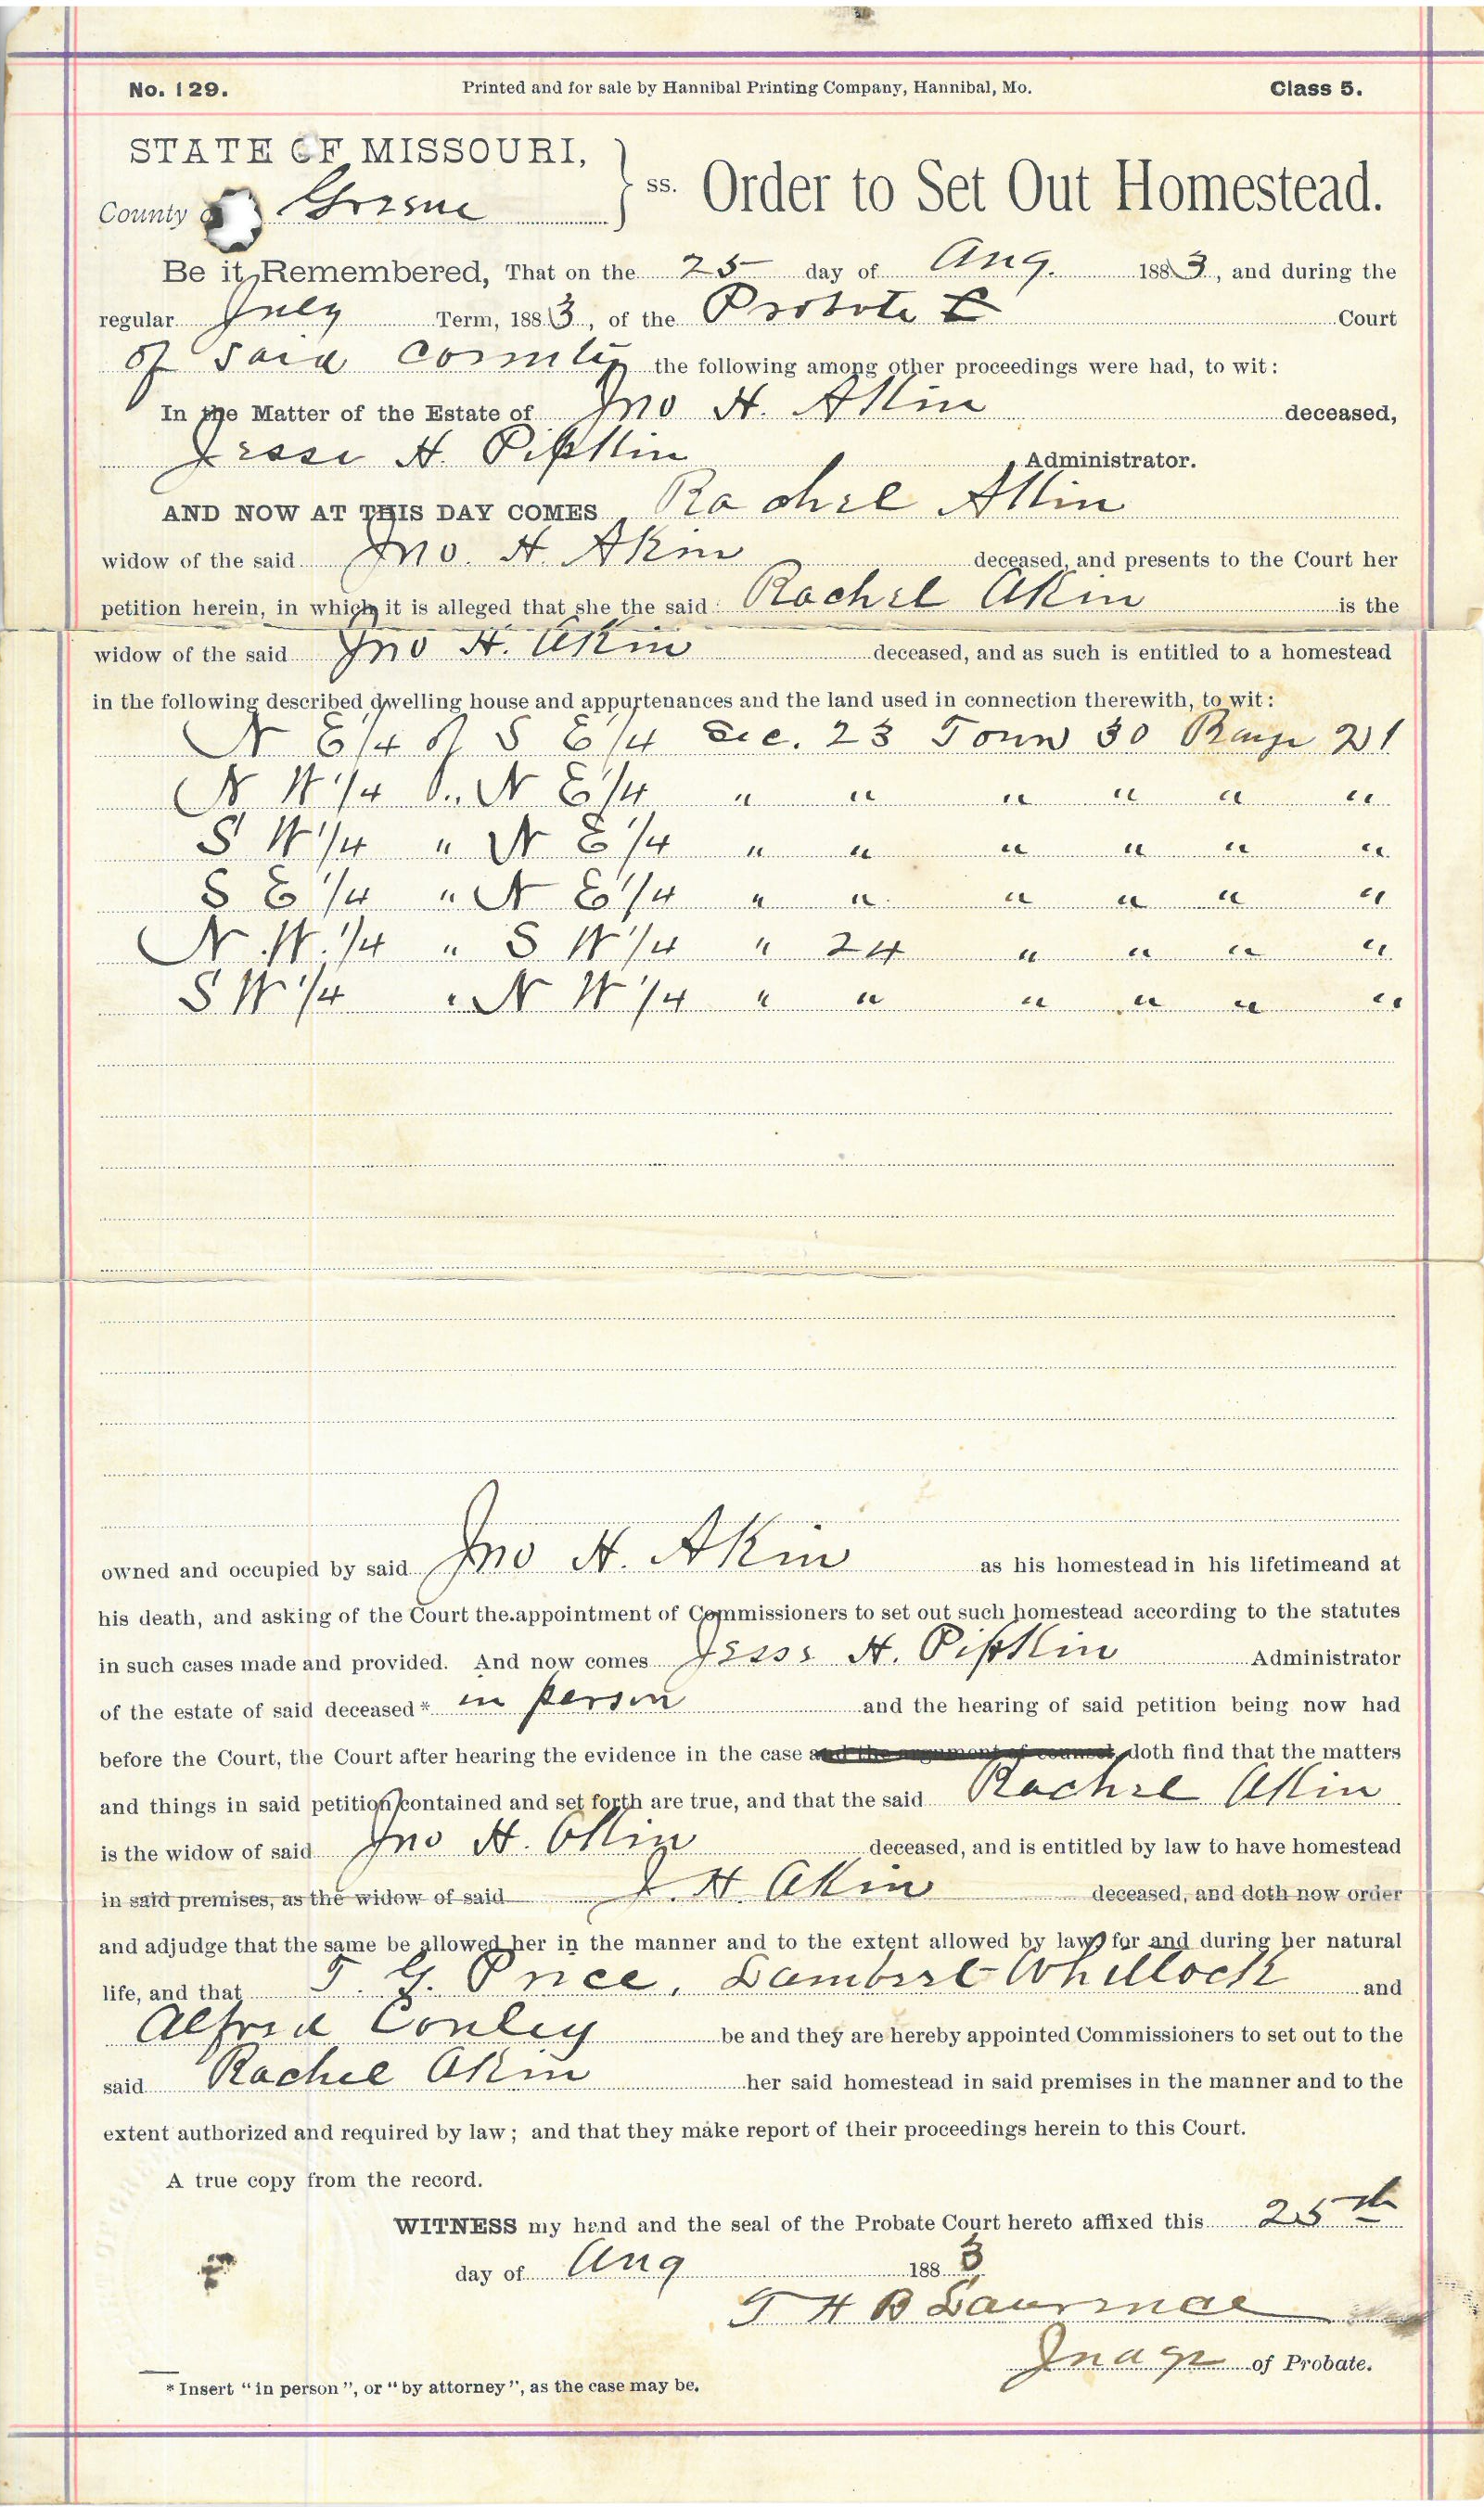 No. 129. Printed and for sale by Hannibal Printing Company, Hannibal, Mo. Class 5.
STATE OF MISSOURI,
County Greene ss. Order to Set Out Homestead.
Be it Remembered, That on the 25 day of Aug. 1883, and during the
regular July Term, 1883, of the Probate Court
of said County the following among other proceedings were had, to wit:
In the Matter of the Estate of Jno H. Akin deceased,
Jesse H. Pipkin Administrator.
AND NOW AT THIS DAY COMES Rachel Akin
widow of the said Jno. H. Akin deceased, and presents to the Court her
petition herein, in which it is alleged that she the said Rachel Akin is the
widow of the said Jno H. Akin deceased, and as such is entitled to a homestead
in the following described dwelling house and appurtenances and the land used in connection therewith, to wit:
N E 1/4 of S E 1/4 Sec. 23 Town 30 Range 21
N W 1/4 " N E 1/4 " " " " " "
S W 1/4 " N E 1/4 " " " " " "
S E 1/4 " N E 1/4 " " " " " "
N.W. 1/4 " S W 1/4 " 24 " " " "
S W 1/4 " N W 1/4 " " " " " "
owned and occupied by said Jno H. Akin as his homestead in his lifetimeand at
his death, and asking of the Court the appointment of Commissioners to set out such homestead according to the statutes
in such cases made and provided. And now comes Jesse H. Pipkin Administrator
of the estate of said deceased* in person and the hearing of said petition being now had
before the Court, the Court after hearing the evidence in the case and the argument of counsel, doth find that the matters
and things in said petition contained and set forth are true, and that the said Rachel Akin
is the widow of said Jno H. Akin deceased, and is entitled by law to have homestead
in said premises, as the widow of said J. H. Akin deceased, and doth now order
and adjudge that the same be allowed her in the manner and to the extent allowed by law for and during her natural
life, and that T. G. Price, Lambert Whitlock and
Alfred Conley be and they are hereby appointed Commissioners to set out to the
said Rachel Akin her said homestead in said premises in the manner and to the
extent authorized and required by law; and that they make report of their proceedings herein to this Court.
A true copy from the record.
WITNESS my hand and the seal of the Probate Court hereto affixed this 25th
day of Aug 1883
T H B Lawrence
Judge of Probate.
* Insert "in person", or "by attorney", as the case may be.